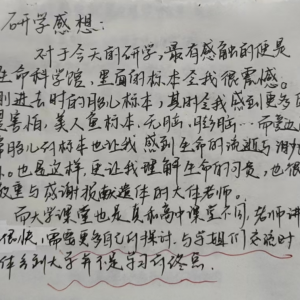 研学感想:
对于今天的研学,最有感触的便是
生命科学馆,里面的标本令我很震憾。
刚进去时的胎儿标本,其时令我感到更多的
是害怕,美人鱼标本、无脑、
胎儿标本也让我感到生命的流逝与
。也是这样,更让我理解生命的可贵,也很
敬重与感谢捐献遗体的大体老师。
而大学课堂也是真和高中课堂不同,老师讲
很快,需要更多自己的探讨,与学姐们交流时
体会到大学并不是学习的终点.